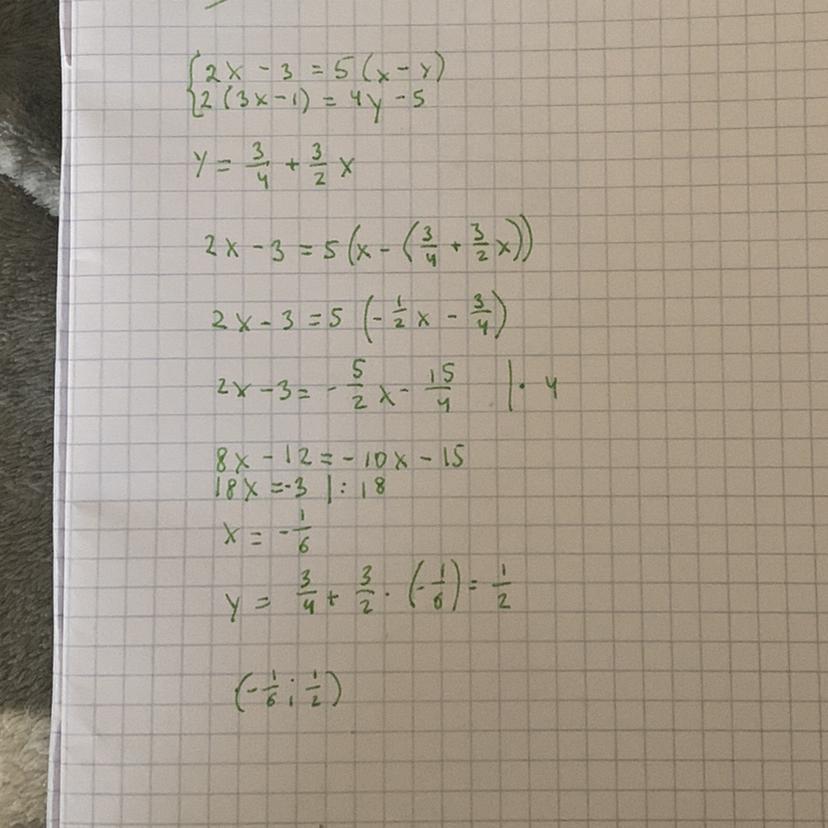 {2x - 3 = 5(x - y)
{2(3x - 1) = 4y - 5
y = 3/4 + 3/2 x
2x - 3 = 5(x - (3/4 + 3/2 x))
2x - 3 = 5(-1/2 x - 3/4)
2x - 3 = -5/2 x - 15/4 | · 4
8x - 12 = -10x - 15
18x = -3 | : 18
x = -1/6
y = 3/4 + 3/2 · (-1/6) = 1/2
(-1/6 ; 1/2)